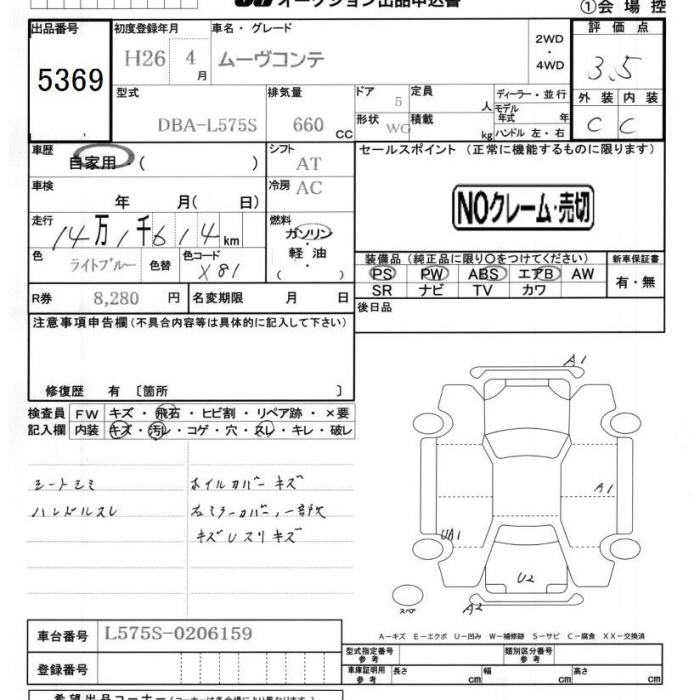 オークション出品申込書
①会場控
出品番号
5369
初度登録年月
H26 4 月
車名・グレード
ムーヴコンテ
2WD
・
4WD
評価点
3.5
外装 内装
C C
型式
DBA-L575S
排気量
660 CC
ドア 5
形状 WG
定員 人
積載 kg
ディーラー・並行
モデル年式 年
ハンドル 左・右
車歴
自家用・( )
シフト AT
冷房 AC
車検
年 月( 日)
走行
14万1千614km
燃料
ガソリン・
軽・油
( ・ )
色 ライトブルー 色替
色コード X81
R券 8,280 円
名変期限 月 日
セールスポイント (正常に機能するものに限ります)
NOクレーム・売切
装備品 (純正品に限り○をつけてください)
PS PW ABS エアB AW
SR ナビ TV カワ
新車保証書
有・無
後日品
注意事項申告欄 (不具合内容等は具体的に記入して下さい)
修復歴 有 〔箇所 〕
検査員 FW キズ・飛石・ヒビ割・リペア跡・×要
記入欄 内装 キズ・汚レ・コゲ・穴・スレ・キレ・破レ
シートシミ
ハンドルスレ
ホイルカバーキズ
右ミラーカバー,一部欠
キズUスリキズ
A1
A1
UA1
U2
A2
スペア
A-キズ E-エクボ U-凹み W-補修跡 S-サビ C-腐食 XX-交換済
車台番号 L575S-0206159
登録番号
型式指定番号 参考
類別区分番号 参考
車庫証明用 参考
長さ cm 幅 cm 高さ cm
希望出品コーナー (コーナーは各会場により異なります)